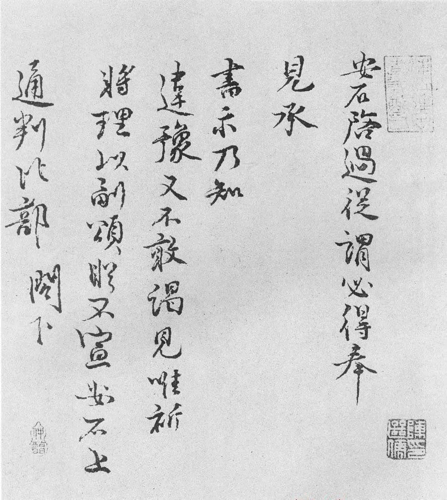 安石啓過從謂必得奉
見承
書示乃知
違豫又不敢謁見唯祈
將理以副頌咏不宣安石上
通判比部 閣下